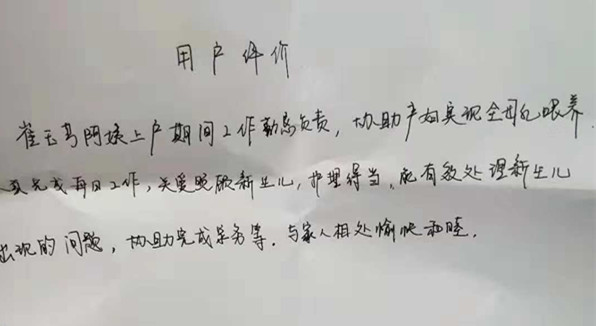 用户评价
崔玉芳阿姨上户期间工作勤恳负责，协助产妇实现全母乳喂养
及完成每日工作，关爱照顾新生儿，护理得当，能有效处理新生儿
出现的问题，协助完成家务等．与家人相处愉快和睦．